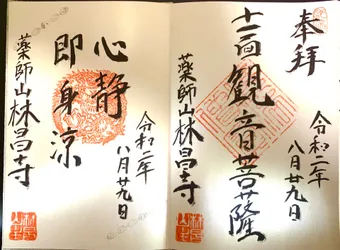 奉拝
令和二年
八月廿九日
十一面観音菩薩
薬師山林昌寺
令和二年
八月廿九日
心静
即身涼
薬師山林昌寺